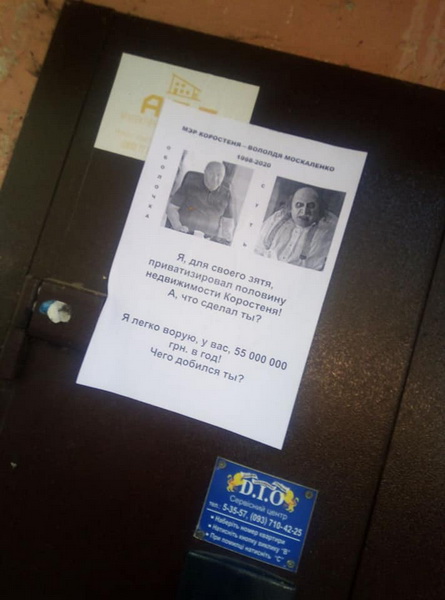 МЭР КОРОСТЕНЯ - ВОЛОДЯ МОСКАЛЕНКО
1998-2020
ОБОЛОЧКА
СУТЬ
Я, для своего зятя,
приватизировал половину
недвижимости Коростеня!
А, что сделал ты?
Я легко ворую, у вас, 55 000 000
грн. в год!
Чего добился ты?
D.I.O
Сервісний центр
тел.: 5-35-57, (093) 710-42-25
• Наберіть номер квартири
• Натисніть кнопку виклику "В"
• При помилці натисніть "С"